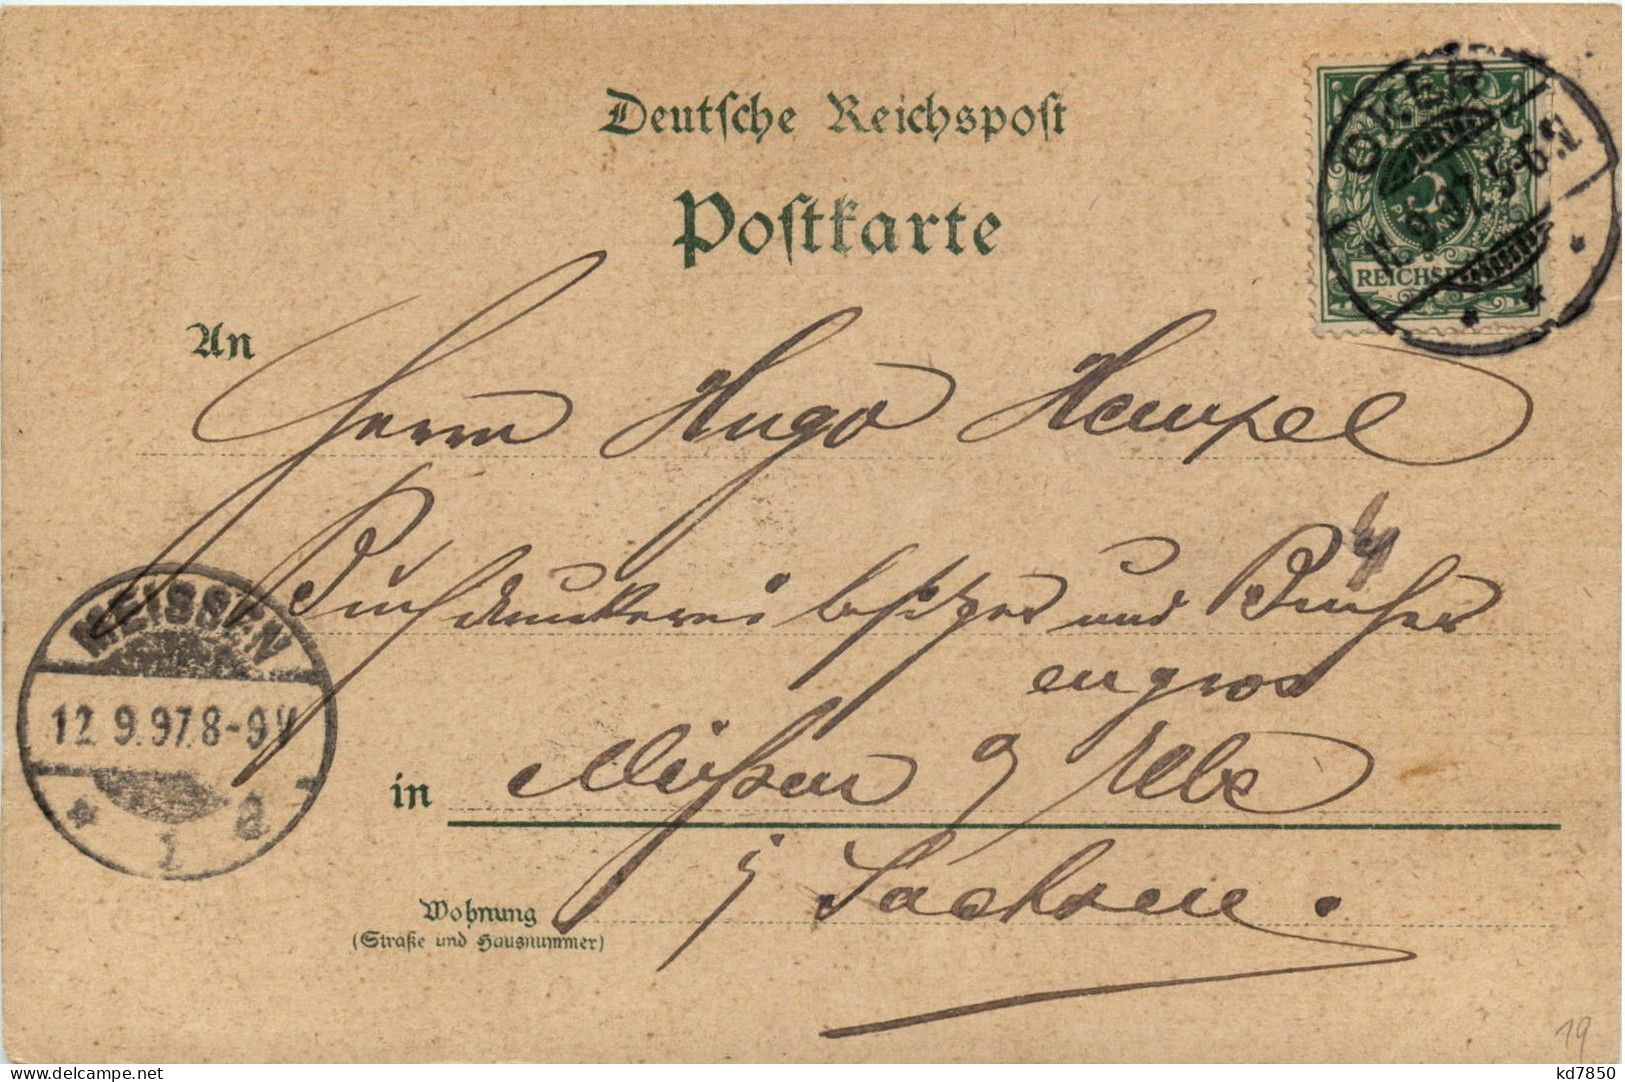 Deutsche Reichspost
Postkarte
OKER
11.9.97.5-6N.
5
REICHSP
An
Herrn Hugo Hempel
Buchdruckereibesitzer und Bücher
engros
MEISSEN
12.9.97.8-9V
1 a
in Meißen a/ Elbe
i/ Sachsen.
Wohnung
(Straße und Hausnummer)
19
www.delcampe.net
kd7850